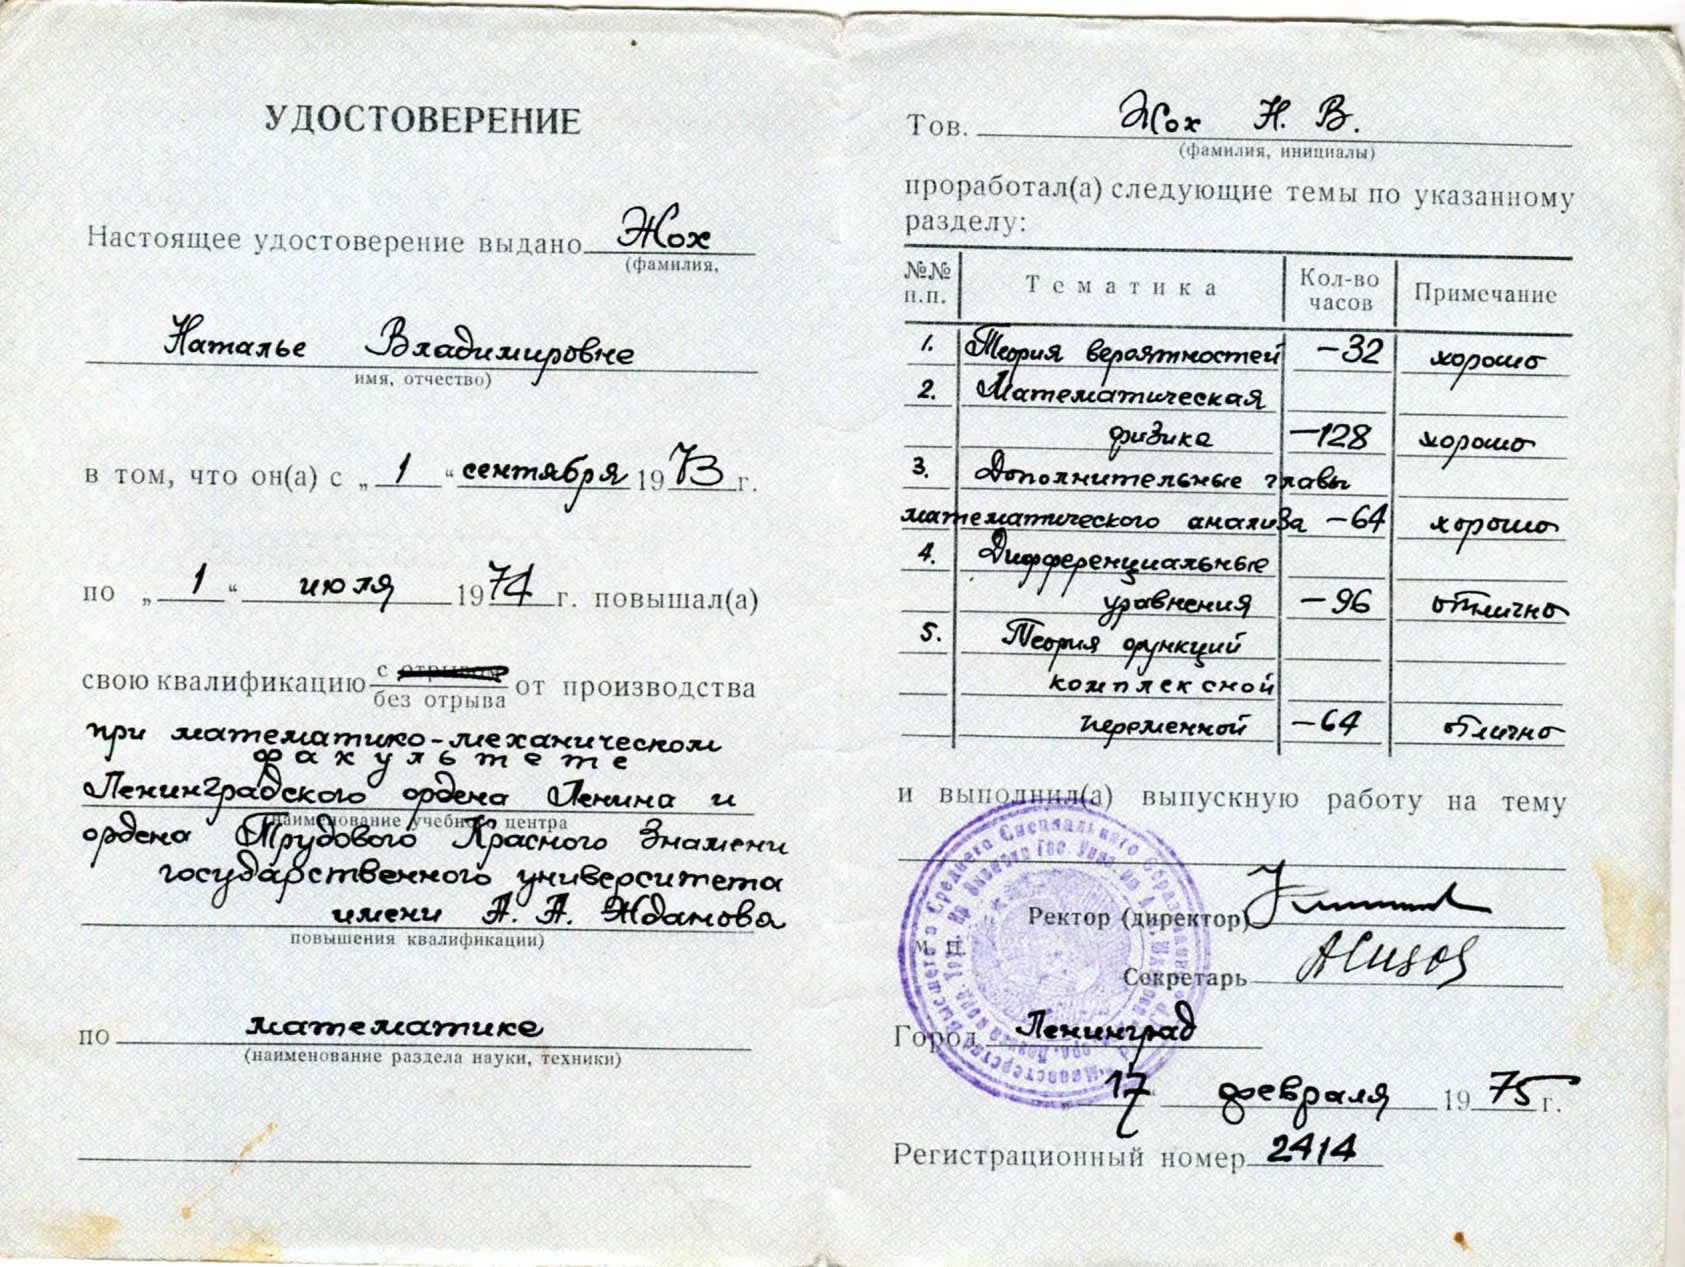 УДОСТОВЕРЕНИЕ
Настоящее удостоверение выдано Жох
(фамилия,
Наталье Владимировне
имя, отчество)
в том, что он(а) с „ 1 “ сентября 1973 г.
по „ 1 “ июля 1974 г. повышал(а)
с отрывом
свою квалификацию от производства
без отрыва
при математико-механическом
факультете
Ленинградского ордена Ленина и
наименование учебного центра
ордена Трудового Красного Знамени
государственного университета
имени А. А. Жданова
повышения квалификации)
по математике
(наименование раздела науки, техники)
Тов. Жох Н. В.
(фамилия, инициалы)
проработал(а) следующие темы по указанному
разделу:
№№ п.п. Тематика Кол-во часов Примечание
1. Теория вероятностей –32 хорошо
2. Математическая
физика –128 хорошо
3. Дополнительные главы
математического анализа –64 хорошо
4. Дифференциальные
уравнения –96 отлично
5. Теория функций
комплексной
переменной –64 отлично
и выполнил(а) выпускную работу на тему
Ректор (директор)
М. П.
Секретарь
Город Ленинград
„ 17 “ февраля 1975 г.
Регистрационный номер 2414